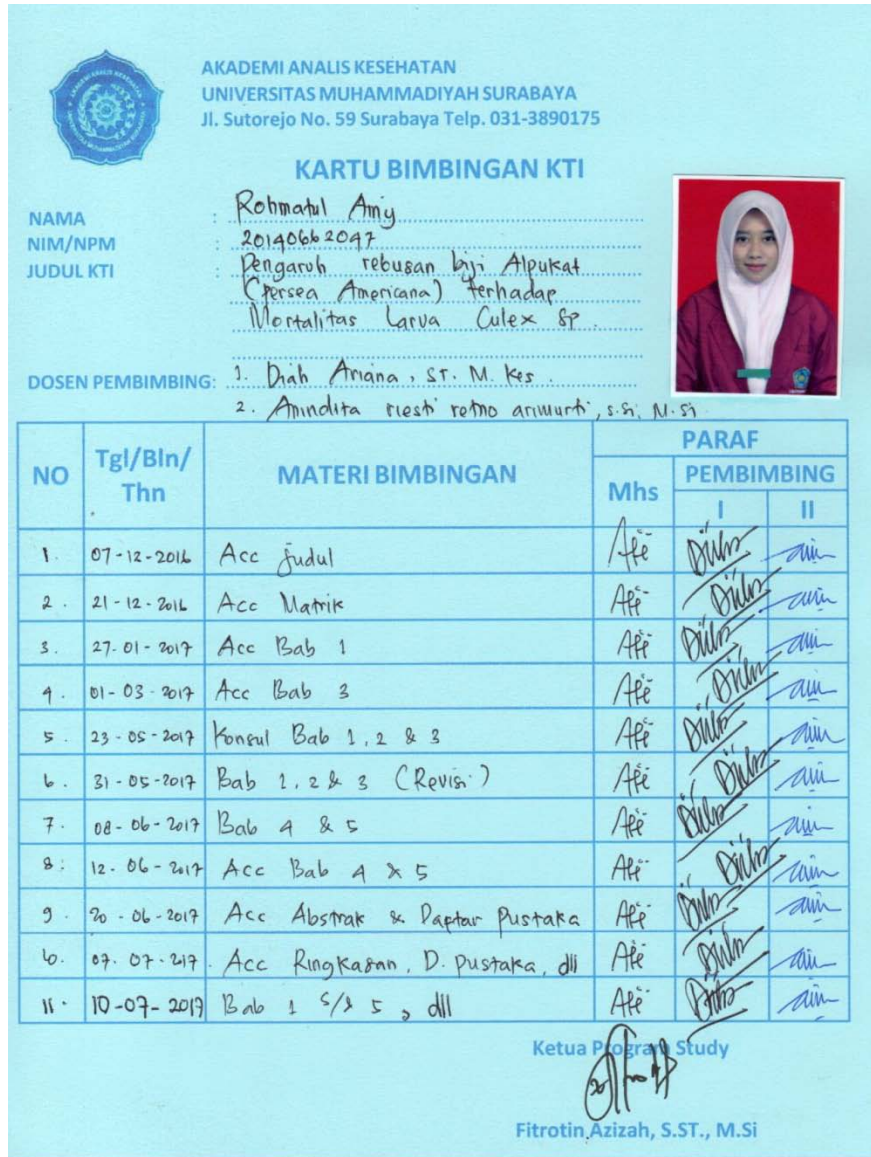 AKADEMI ANALIS KESEHATAN
UNIVERSITAS MUHAMMADIYAH SURABAYA
Jl. Sutorejo No. 59 Surabaya Telp. 031-3890175
KARTU BIMBINGAN KTI
NAMA : Rohmatul Amy
NIM/NPM : 20140662047
JUDUL KTI : Pengaruh rebusan biji Alpukat
(Persea Americana) terhadap
Mortalitas Larva Culex sp.
DOSEN PEMBIMBING: 1. Diah Ariana, ST. M. Kes.
2. Anindita riesti retno arimurti, s.si, M.si
NO Tgl/Bln/Thn MATERI BIMBINGAN PARAF
Mhs PEMBIMBING
I II
1. 07-12-2016 Acc judul
2. 21-12-2016 Acc Matrik
3. 27-01-2017 Acc Bab 1
4. 01-03-2017 Acc Bab 3
5. 23-05-2017 Konsul Bab 1, 2 & 3
6. 31-05-2017 Bab 1, 2 & 3 (Revisi)
7. 08-06-2017 Bab 4 & 5
8. 12-06-2017 Acc Bab 4 & 5
9. 20-06-2017 Acc Abstrak & Daptar Pustaka
10. 07-07-217 Acc Ringkasan, D. pustaka, dll
11. 10-07-2017 Bab 1 s/d 5, dll
Ketua Program Study
Fitrotin Azizah, S.ST., M.Si